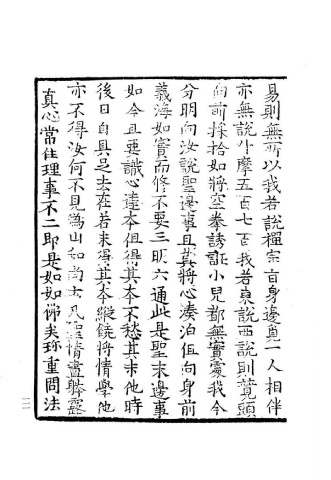 易則無所以我若說禪宗旨身邊覓一人相伴
亦無說什摩五百七百我若東說西說則競頭
向前採拾如將空拳誘誑小兒都無實處我今
分明向汝說聖邊事且莫將心湊泊但向身前
義海如實而修不要三明六通此是聖末邊事
如今且要識心達本但得其本不愁其末他時
後日自具足去在若未得其本縱饒將情學他
亦不得汝何不見為山和尚云凡聖情盡躰露
真心常住理事不二即是如如佛矣珍重問法